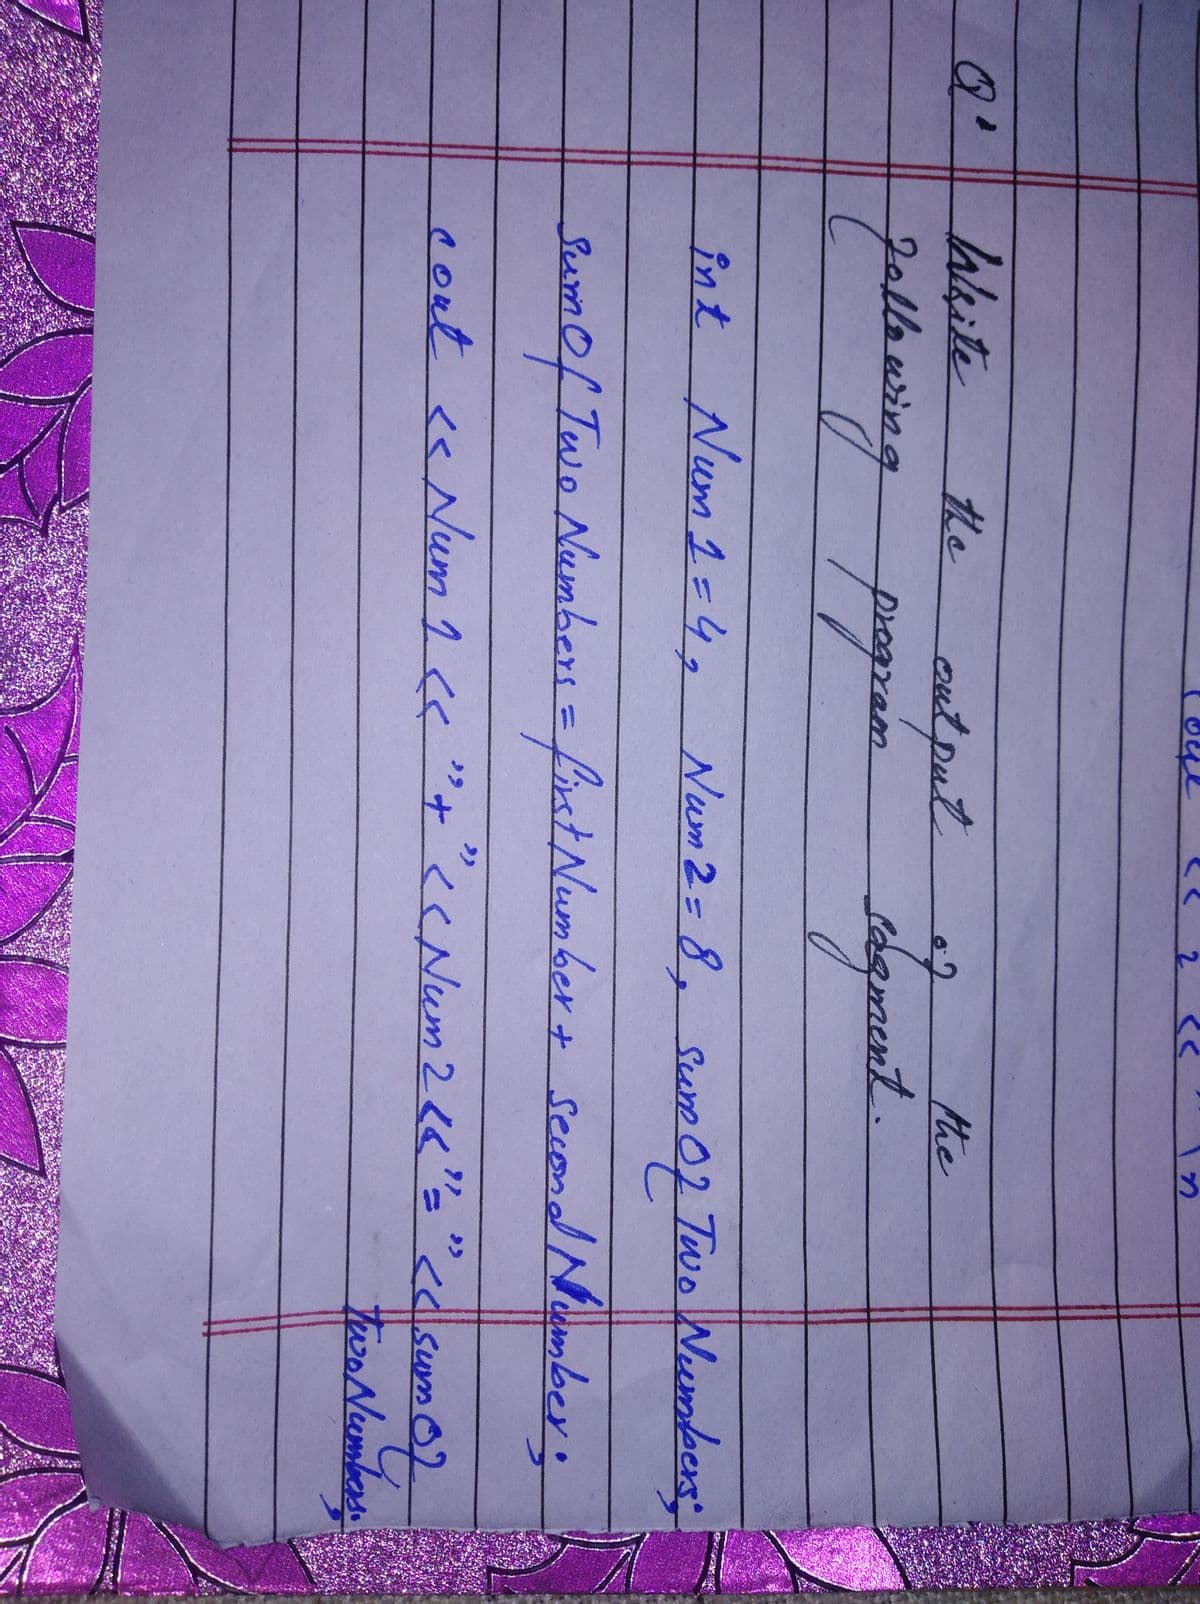 cout << 2 <<
Q: Write the output of the
following program segment.
int Num1=4, Num2=8, sumOfTwoNumbers;
sumOfTwoNumbers = firstNumber + SecondNumber;
cout << Num1 << "+" << Num2 << "=" << sumOf
TwoNumbers;